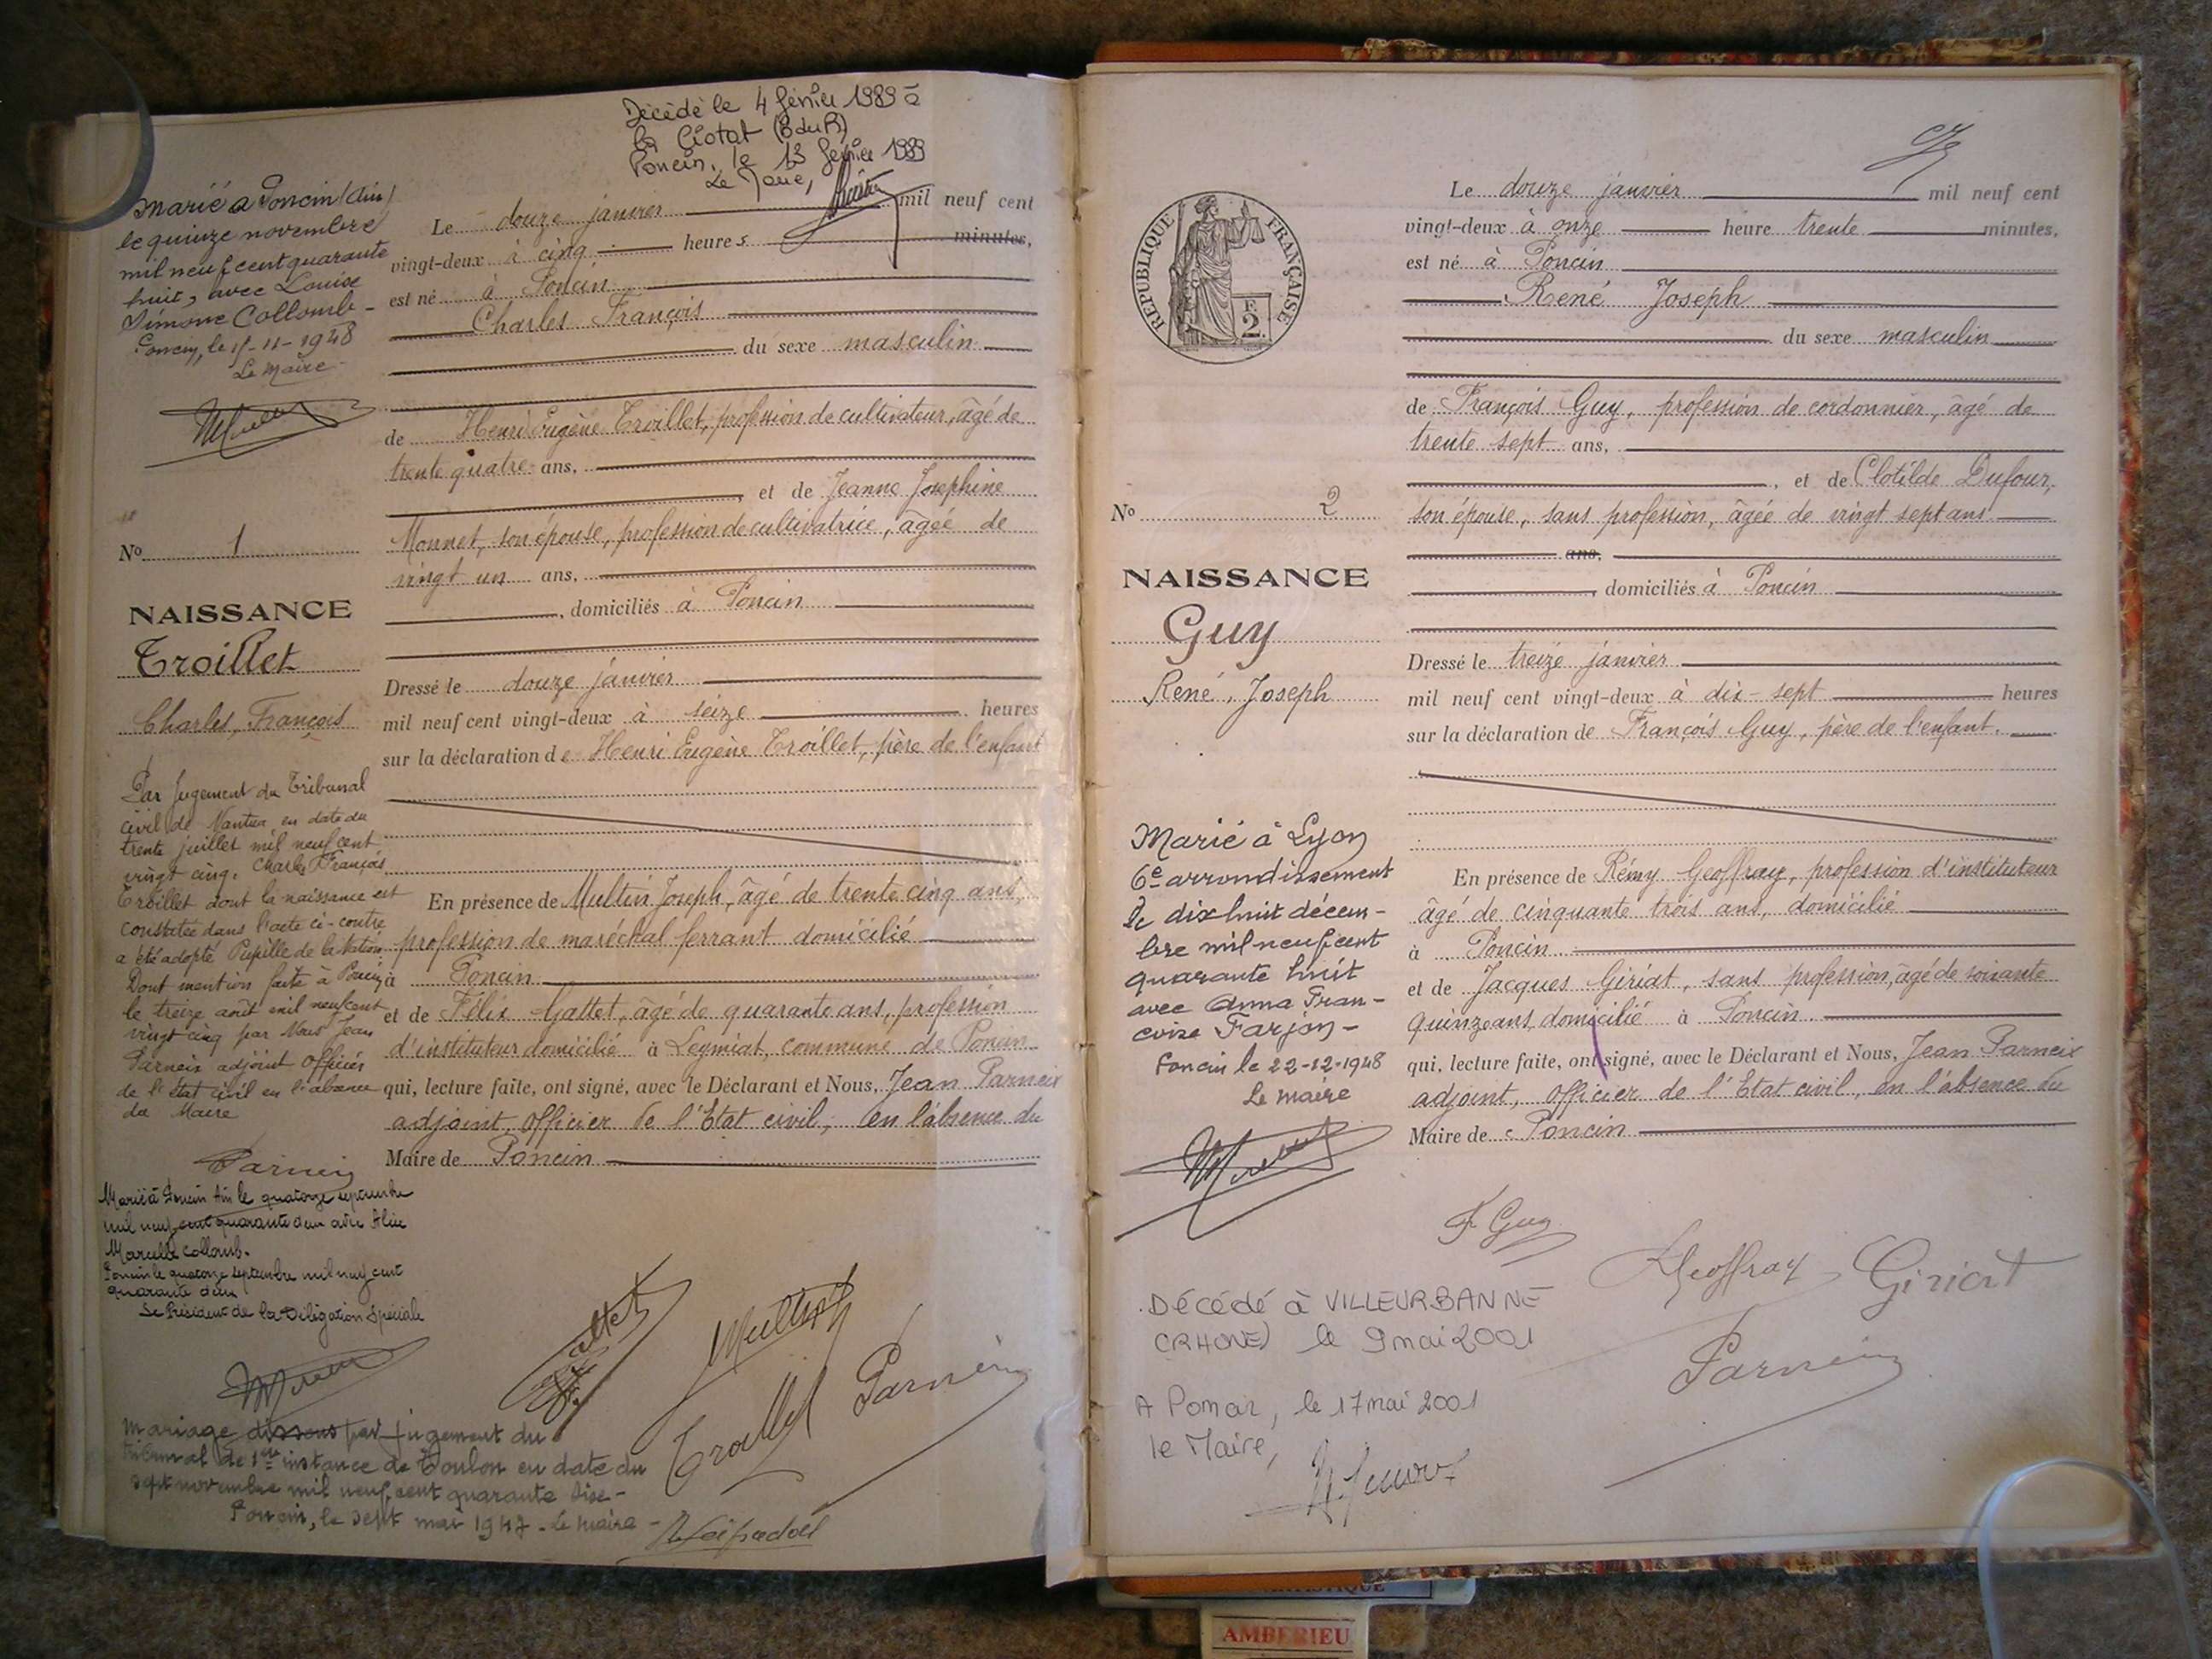 Décédé le 4 février 1989 à
la Ciotat (B du R)
Poncin, le 13 février 1989
Le Maire,
Marié à Poncin (Ain)
le quinze novembre
mil neuf cent quarante
huit, avec Louise
Simone Collomb -
Poncin, le 15-11-1948
Le Maire
Le douze janvier mil neuf cent
vingt-deux à cinq heures minutes,
est né à Poncin
Charles François
du sexe masculin
de Henri Eugène Troillet, profession de cultivateur, âgé de
trente quatre ans,
, et de Jeanne Josephine
Monnet, son épouse, profession de cultivatrice, âgée de
vingt un ans,
, domiciliés à Poncin
No 1
NAISSANCE
Troillet
Charles, François
Dressé le douze janvier
mil neuf cent vingt-deux à seize heures
sur la déclaration de Henri Eugène Troillet, père de l'enfant
Par Jugement du Tribunal
civil de Nantua en date du
trente juillet mil neuf cent
vingt cinq, Charles François
Troillet dont la naissance est
constatée dans l'acte ci-contre
a été adopté Pupille de la Nation
Dont mention faite à Poncin
le treize août mil neuf cent
vingt cinq par Nous Jean
Parneix adjoint officier
de l'état civil en l'absence
du Maire
Parneix
En présence de Multin Joseph, âgé de trente cinq ans,
profession de maréchal ferrant domicilié
à Poncin
et de Félix Gattet, âgé de quarante ans, profession
d'instituteur domicilié à Leymiat, commune de Poncin
qui, lecture faite, ont signé, avec le Déclarant et Nous, Jean Parneix
adjoint, officier de l'Etat civil, en l'absence du
Maire de Poncin
Marié à Poncin Ain le quatorze septembre
mil neuf cent quarante deux avec Alice
Marcelle Collomb.
Poncin le quatorze septembre mil neuf cent
quarante deux
Le Président de la Délégation Spéciale
Gattet
Multin J
Troillet
Parneix
Mariage dissous par jugement du
tribunal de 1ère instance de Toulon en date du
sept novembre mil neuf cent quarante six -
Poncin, le sept mai 1947 - Le Maire -
RÉPUBLIQUE FRANÇAISE
F.
2
Le douze janvier mil neuf cent
vingt-deux à onze heure trente minutes,
est né à Poncin
René Joseph
du sexe masculin
de François Guy, profession de cordonnier, âgé de
trente sept ans,
, et de Clotilde Dufour,
son épouse, sans profession, âgée de vingt sept ans
ans,
, domiciliés à Poncin
No 2
NAISSANCE
Guy
René, Joseph
Dressé le treize janvier
mil neuf cent vingt-deux à dix-sept heures
sur la déclaration de François Guy, père de l'enfant.
Marié à Lyon
6e arrondissement
le dix huit décem-
bre mil neuf cent
quarante huit
avec Anna Fran-
coise Farjon -
Poncin le 22-12-1948
Le maire
En présence de Rémy Geoffray, profession d'instituteur
âgé de cinquante trois ans, domicilié
à Poncin
et de Jacques Giriat, sans profession, âgé de soixante
quinze ans, domicilié à Poncin.
qui, lecture faite, ont signé, avec le Déclarant et Nous, Jean Parneix
adjoint, officier de l'Etat civil, en l'absence du
Maire de Poncin
F Guy
Geoffray
Giriat
Parneix
Décédé à VILLEURBANNE
(RHONE) le 9 mai 2001
A Poncin, le 17 mai 2001
le Maire,
AMBERIEU